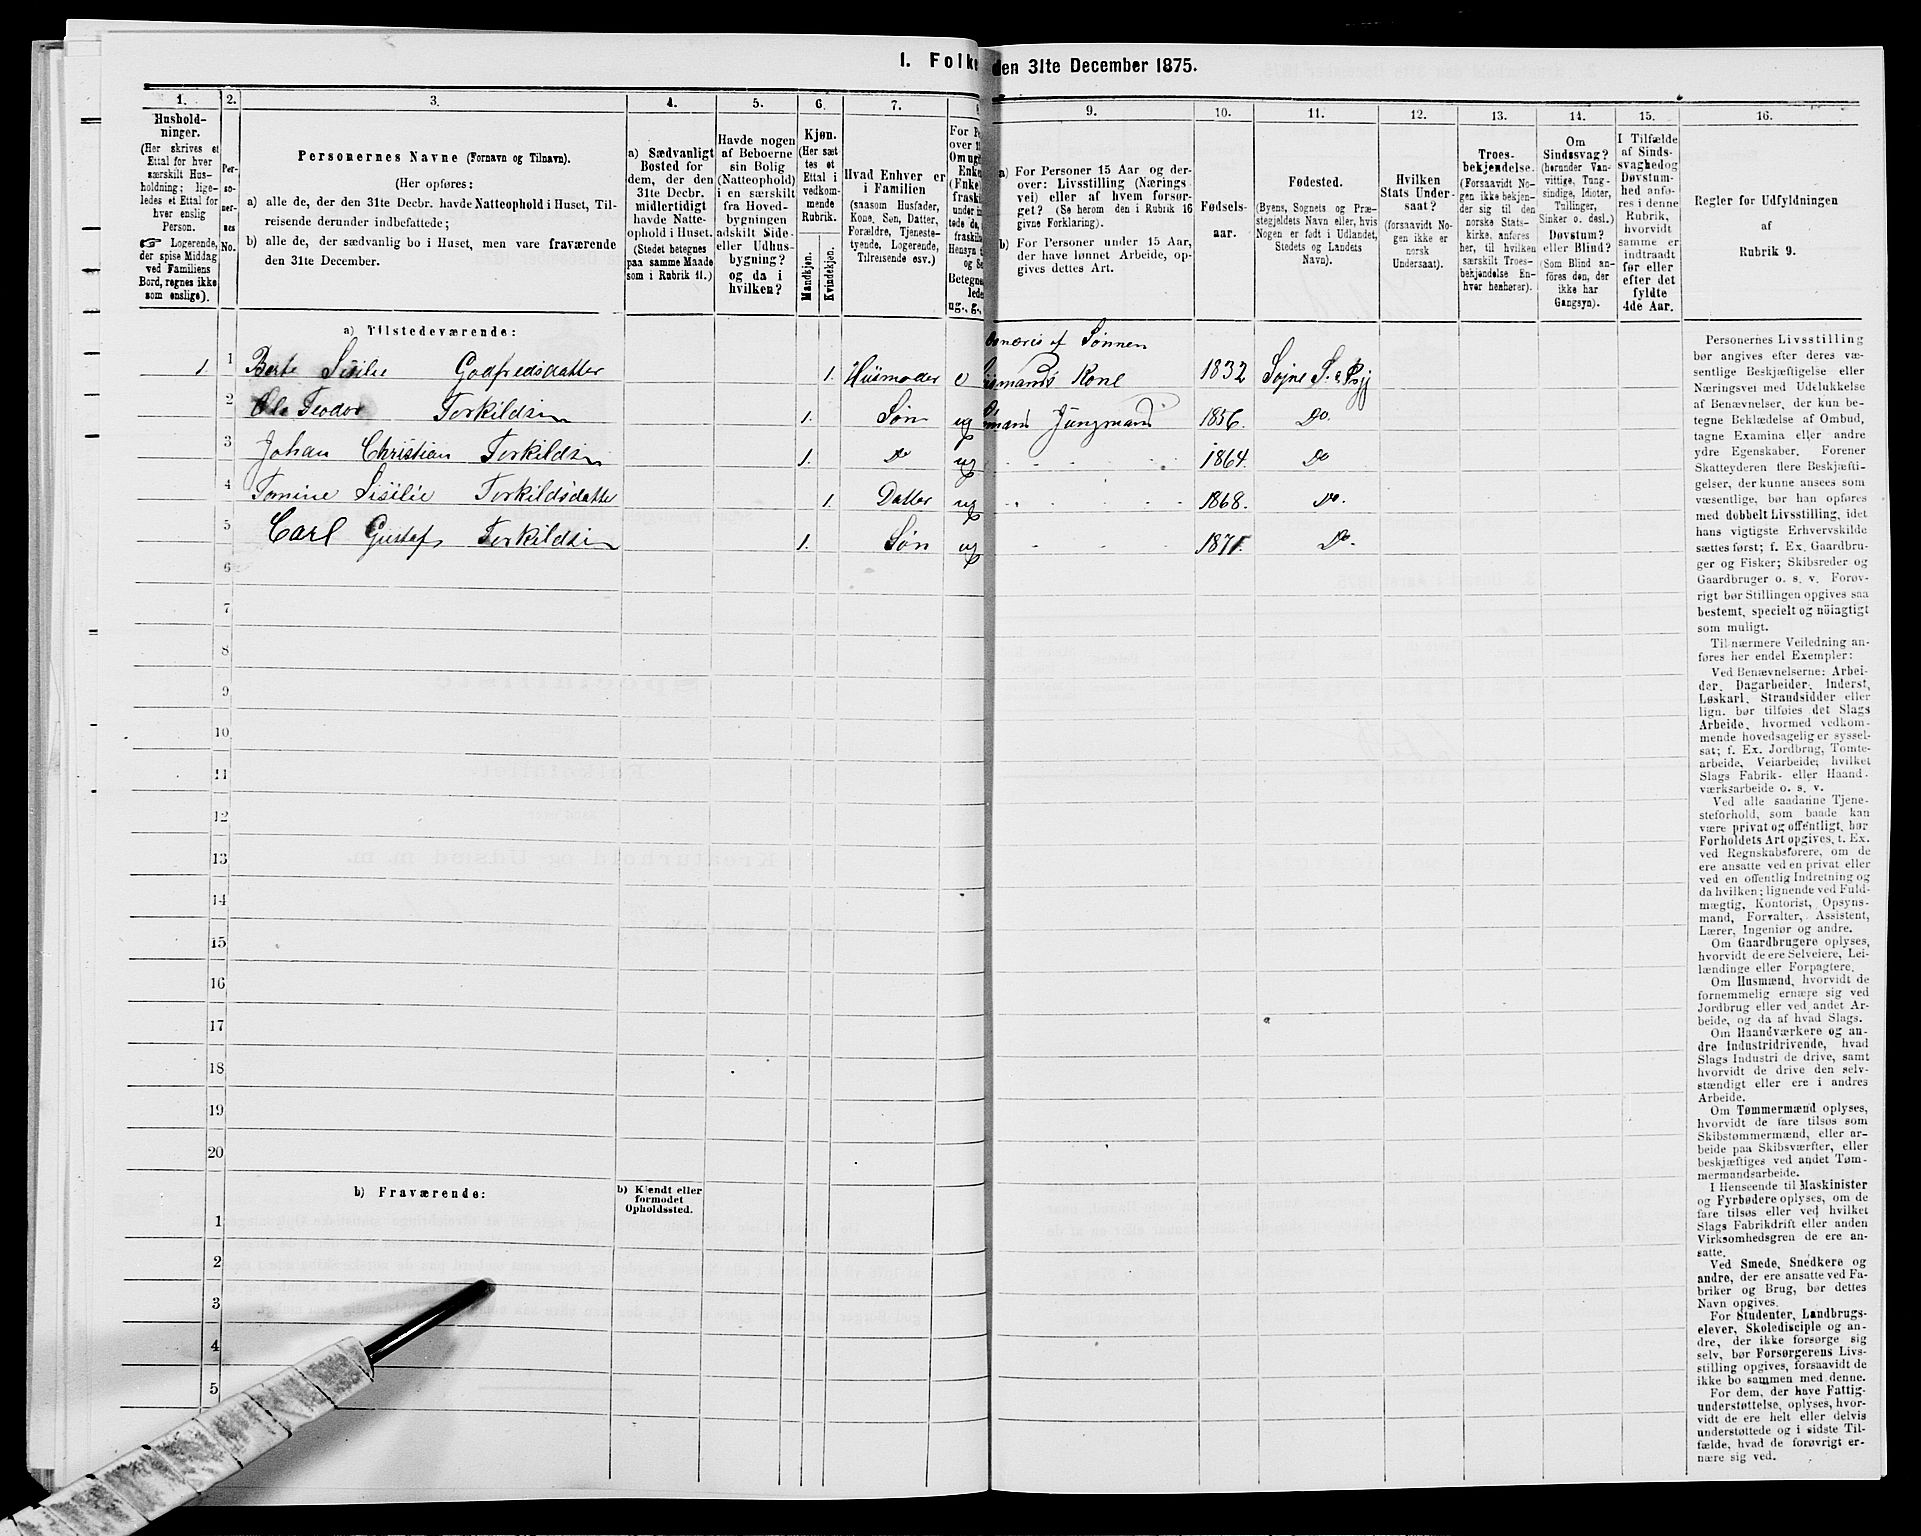 1. Folke
den 31te December 1875.
1.
2.
3.
4.
5.
6.
7.
8
9.
10.
11.
12.
13.
14.
15.
16.
Hushold-
ninger.
(Her skrives et
Ettal for hver
særskilt Hus-
holdning; lige-
ledes et Ettal for
hver enslig
Person.
☞ Logerende,
der spise Middag
ved Familiens
Bord, regnes ikke
som enslige).
Per-
so-
ner-
nes
No.
Personernes Navne (Fornavn og Tilnavn).
(Her opføres:
a) alle de, der den 31te Decbr. havde Natteophold i Huset, Til-
reisende derunder indbefattede;
b) alle de, der sædvanlig bo i Huset, men vare fraværende
den 31te December.
a) Sædvanligt
Bosted for
dem, der den
31te Decbr.
midlertidigt
havde Natte-
ophold i Huset.
(Stedet betegnes
paa samme Maade
som i Rubrik 11.)
Havde nogen
af Beboerne
sin Bolig
(Natteophold)
i en særskilt
fra Hoved-
bygningen
adskilt Side-
eller Udhus-
bygning?
og da i
hvilken?
Kjøn.
(Her sæt
tes et
Ettal i
vedkom-
mende
Rubrik.
Mandkjøn.
Kvindekjøn.
Hvad Enhver er
i Familien
(saasom Husfader,
Kone, Søn, Datter,
Forældre, Tjeneste-
tyende, Logerende,
Tilreisende osv.)
For P
over 1
Om ugif
Enke
(Enkel
fraski
under in
tede de,
fraskil
Hensyn t
og Se
Betegne
lede
ug., g.,
a) For Personer 15 Aar og der-
over: Livsstilling (Nærings
vei) eller af hvem forsør-
get? (Se herom den i Rubrik 16
givne Forklaring).
b) For Personer under 15 Aar,
der have lønnet Arbeide, op-
gives dettes Art.
Fødsels-
aar.
Fødested.
(Byens, Sognets og Præ-
stegjeldets Navn eller, hvis
Nogen er født i Udlandet,
Stedets og Landets
Navn).
Hvilken
Stats Under-
saat?
(forsaavidt No-
gen ikke er
norsk
Undersaat).
Troes-
bekjendelse.
(Forsaavidt No-
gen ikke bekjen-
der sig til den
norske Stats-
kirke, anføres
her, til hvilken
særskilt Troes-
bekjendelse En-
hver henhører).
Om
Sindssvag?
(herunder Van-
vittige, Tung-
sindige, Idioter,
Tullinger,
Sinker o. desl.)
Døvstum?
eller Blind?
(Som Blind an-
føres den, der
ikke har
Gangsyn).
I Tilfælde
af Sinds-
svaghed og
Døvstum-
hed anfø-
res i denne
Rubrik,
hvorvidt
samme er
indtraadt
før eller
efter det
fyldte
4de Aar.
Regler for Udfyldningen
af
Rubrik 9.
a) Tilstedeværende:
af Sønnen
1 1 Berte Sisilie Godfredsdatter 1. Husmoder e Kone 1832
2 Ole Teodor Terkildsen 1. Søn ug Jungmand 1856. Do.
3 Johan Christian Terkildsen 1. Do ug 1864. Do
4 Tomine Sisilie Terkildsdatte 1. Datter ug 1868. Do.
5 Carl Gustaf Terkildsen 1. Søn ug 1871. Do.
6
7
8
9
10
11
12
13
14
15
16
17
18
19
20
b) Fraværende:
b) Kjendt eller
formodet
Opholdssted.
1
2
3
4
5
Personernes Livsstilling
bør angives efter deres væ-
sentlige Beskjæftigelse eller
Næringsvei med Udelukkelse
af Benævnelser, der kun be-
tegne Beklædelse af Ombud,
tagne Examina eller andre
ydre Egenskaber. Forener
Skatteyderen flere Beskjæfti-
gelser, der kunne ansees som
væsentlige, bør han opføres
med dobbelt Livsstilling, idet
hans vigtigste Erhvervskilde
sættes først; f. Ex. Gaardbru-
ger og Fisker; Skibsreder og
Gaardbruger o. s. v. Forøv-
rigt bør Stillingen opgives saa
bestemt, specielt og nöiagtigt
som muligt.
Til nærmere Veiledning an-
føres her endel Exempler:
Ved Benævnelserne: Arbei-
der, Dagarbeider, Inderst,
Løskarl, Strandsidder eller
lign. bør tilføies det Slags
Arbeide, hvormed vedkom-
mende hovedsagelig er syssel-
sat; f. Ex. Jordbrug, Tomte-
arbeide, Veiarbeide, hvilket
Slags Fabrik- eller Haand-
værksarbeide o. s. v.
Ved alle saadanne Tjene-
steforhold, som baade kan
være privat og offentligt, bør
Forholdets Art opgives, t. Ex.
ved Regnskabsførere, om de
ere ansatte ved en privat eller
ved en offentlig Indretning og
da hvilken; lignende ved Fuld-
mægtig, Kontorist, Opsyns-
mand, Forvalter, Assistent,
Lærer, Ingeniør og andre.
Om Gaardbrugere oplyses,
hvorvidt de ere Selveiere, Lei-
lændinge eller Forpagtere.
Om Husmænd, hvorvidt de
fornemmelig ernære sig ved
Jordbrug eller ved andet Ar-
beide, og da af hvad Slags.
Om Haandværkere og an-
dre Industridrivende, hvad
Slags Industri de drive, samt
hvorvidt de drive den selv-
stændigt eller ere i andres
Arbeide.
Om Tømmermænd oplyses,
hvorvidt de fare tilsøs som
Skibstømmermænd, eller ar-
beide paa Skibsværfter, eller
beskjæftiges ved andet Tøm-
mermandsarbeide.
I Henseende til Maskinister
og Fyrbødere oplyses, om de
fare tilsøs eller ved hvilket
Slags Fabrikdrift eller anden
Virksomhedsgren de ere an-
satte.
Ved Smede, Snedkere og
andre, der ere ansatte ved Fa-
briker og Brug, bør dettes
Navn opgives.
For Studenter, Landbrugs-
elever, Skoledisciple og an-
dre, der ikke forsørge sig
selv, bør Forsørgerens Livs-
stilling opgives, forsaavidt de
ikke bo sammen med denne.
For dem, der have Fattig-
understøttelse, oplyses, hvor-
vidt de ere helt eller delvis
understøttede og i sidste Til-
fælde, hvad de forøvrigt er-
nære sig ved.